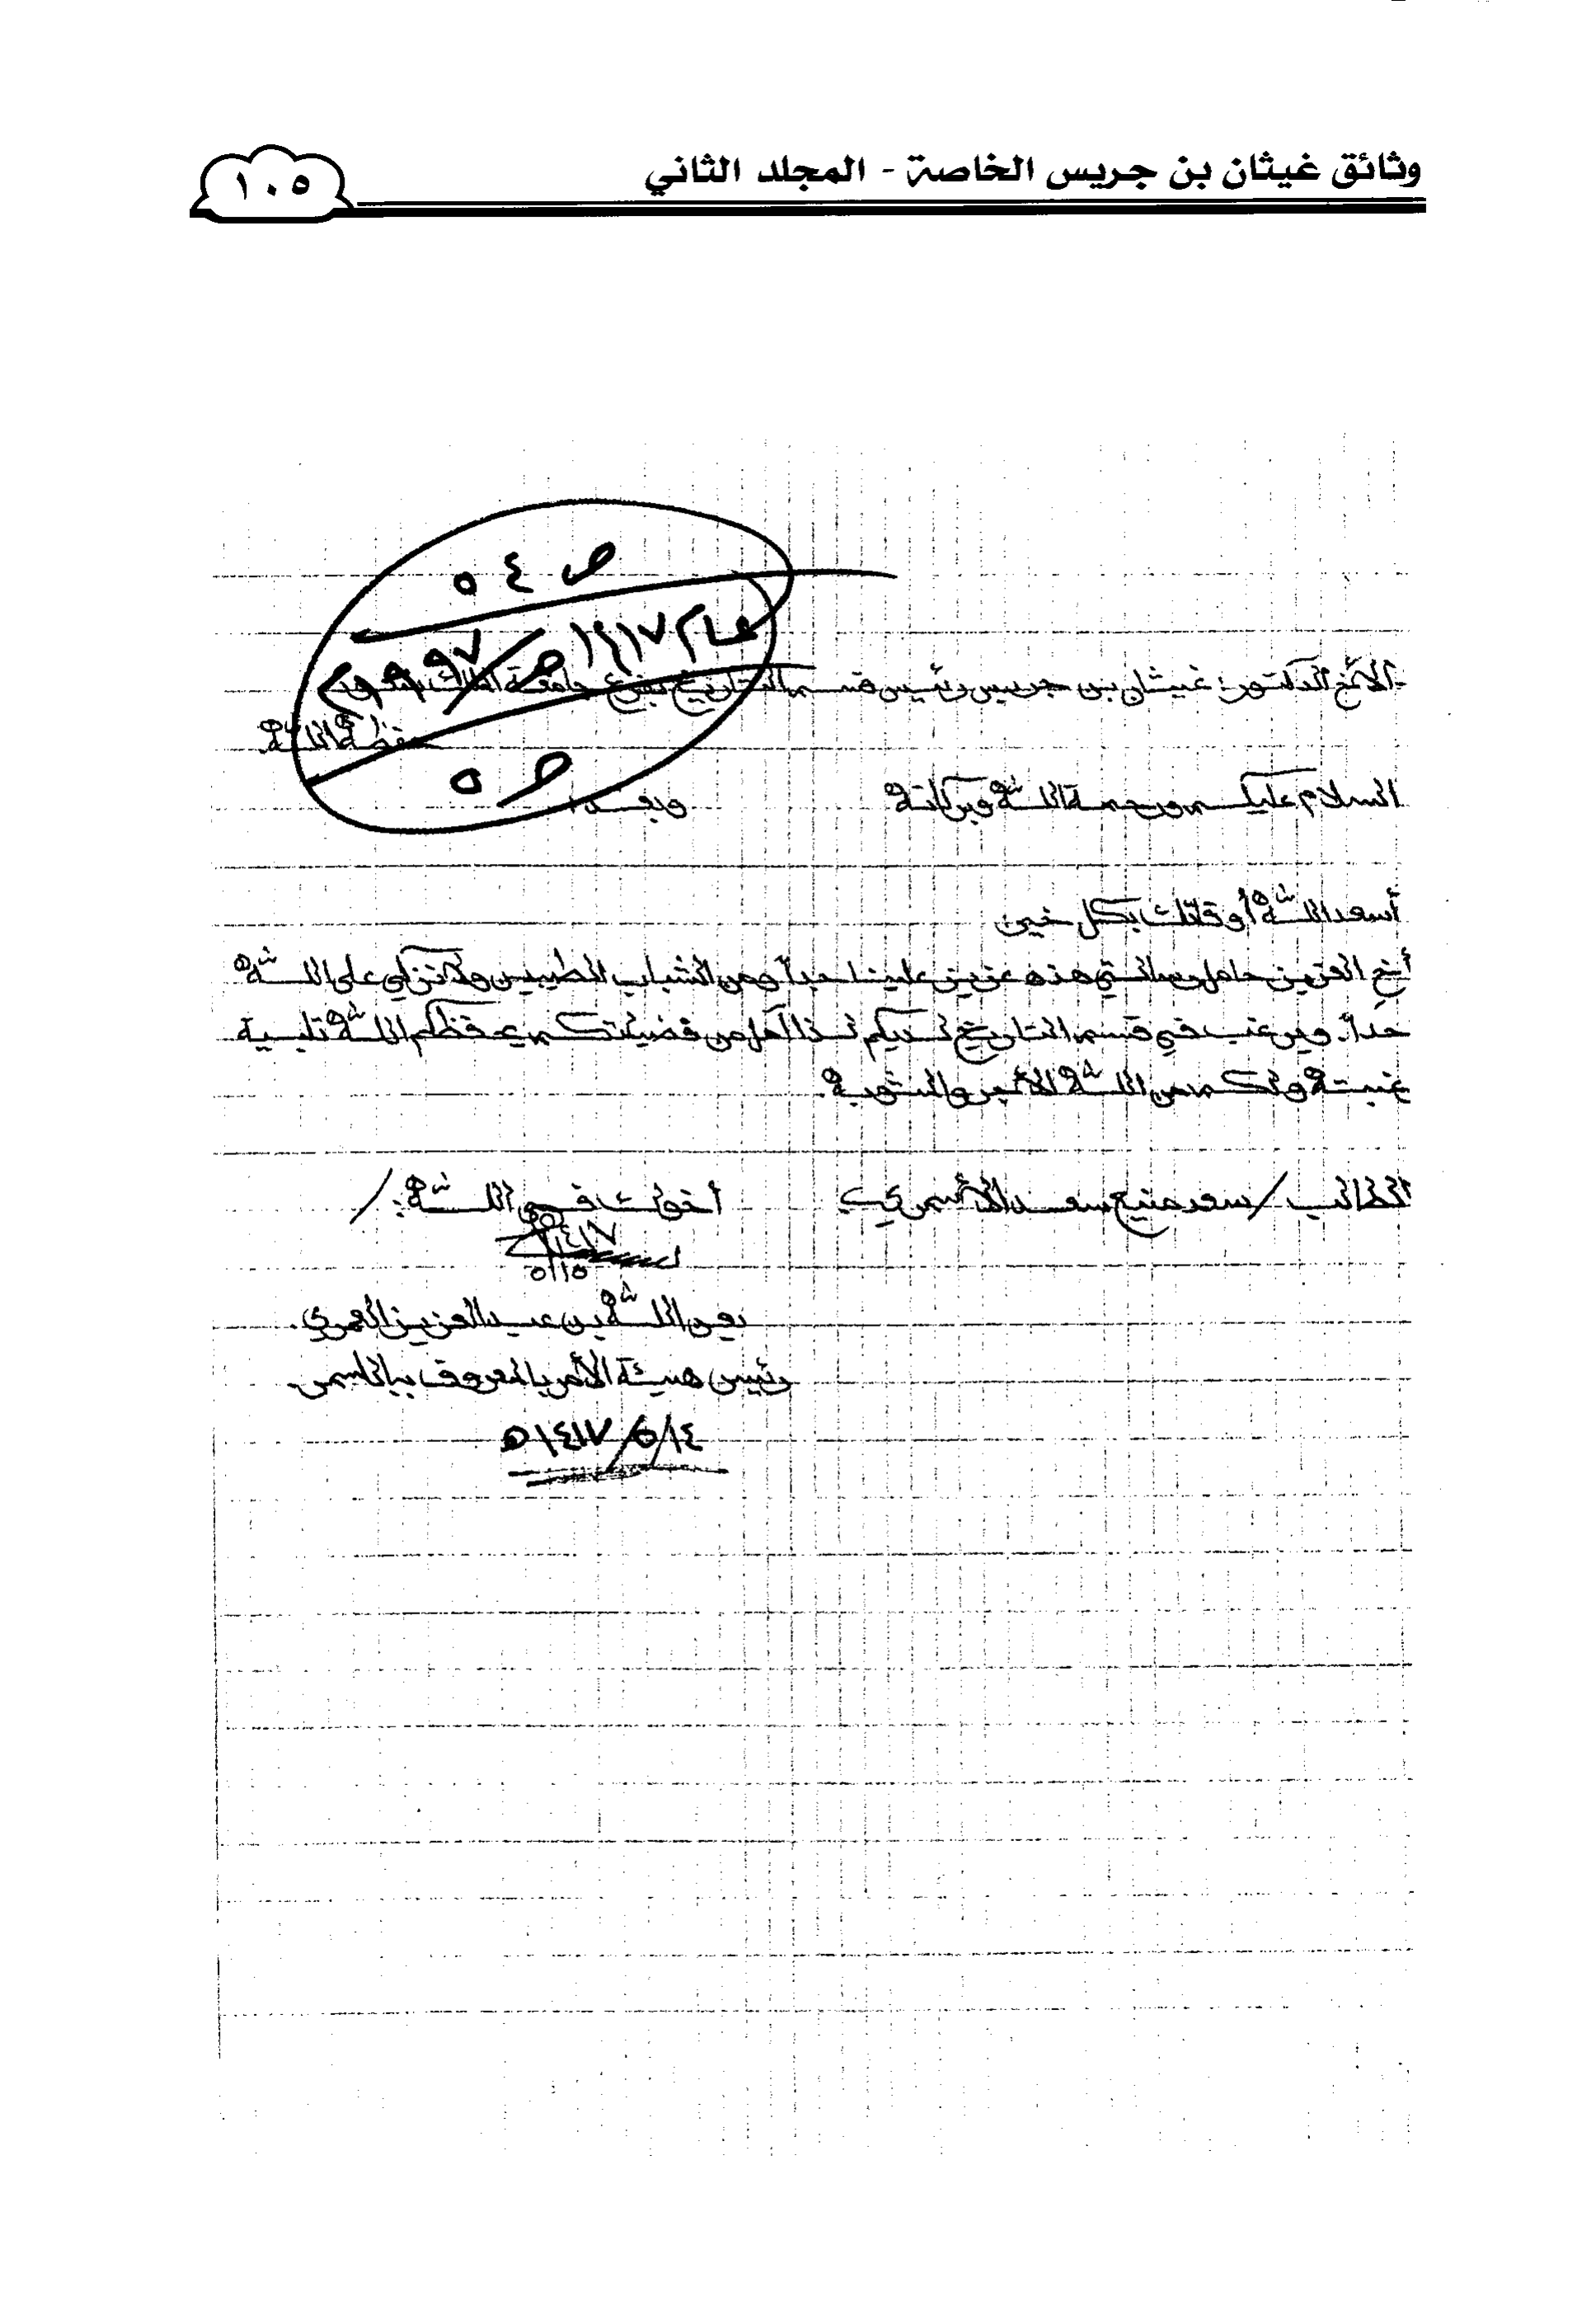 وثائق غيثان بن جريس الخاصة - المجلد الثاني
١٠٥
ص ٤ ٥
عام ١٤١٧هـ / ١٩٩٧م
ص ٥
الأخ الدكتور: غيثان بن جريس رئيس قسم التاريخ بفرع جامعة الملك سعود
حفظه الله
السلام عليكم ورحمة الله وبركاته وبعد:
أسعد الله أوقاتك بكل خير
أخي العزيز حامل رسالتي هذه عزيز علينا جداً ومن الشباب الطيبين ولا نزكي على الله
أحداً. ويرغب في قسم التاريخ لديكم لذا آمل من فضيلتكم حفظكم الله تلبية
رغبته ولكم من الله الأجر والمثوبة.
الطالب / سعد منيع سعد الأسمري أخوك في الله: /
١٤١٧
٥/١٥
بن عبدالعزيز العمري.
رئيس هيئة الأمر بالمعروف ببللسمر.
١٤/٥/١٤١٧هـ